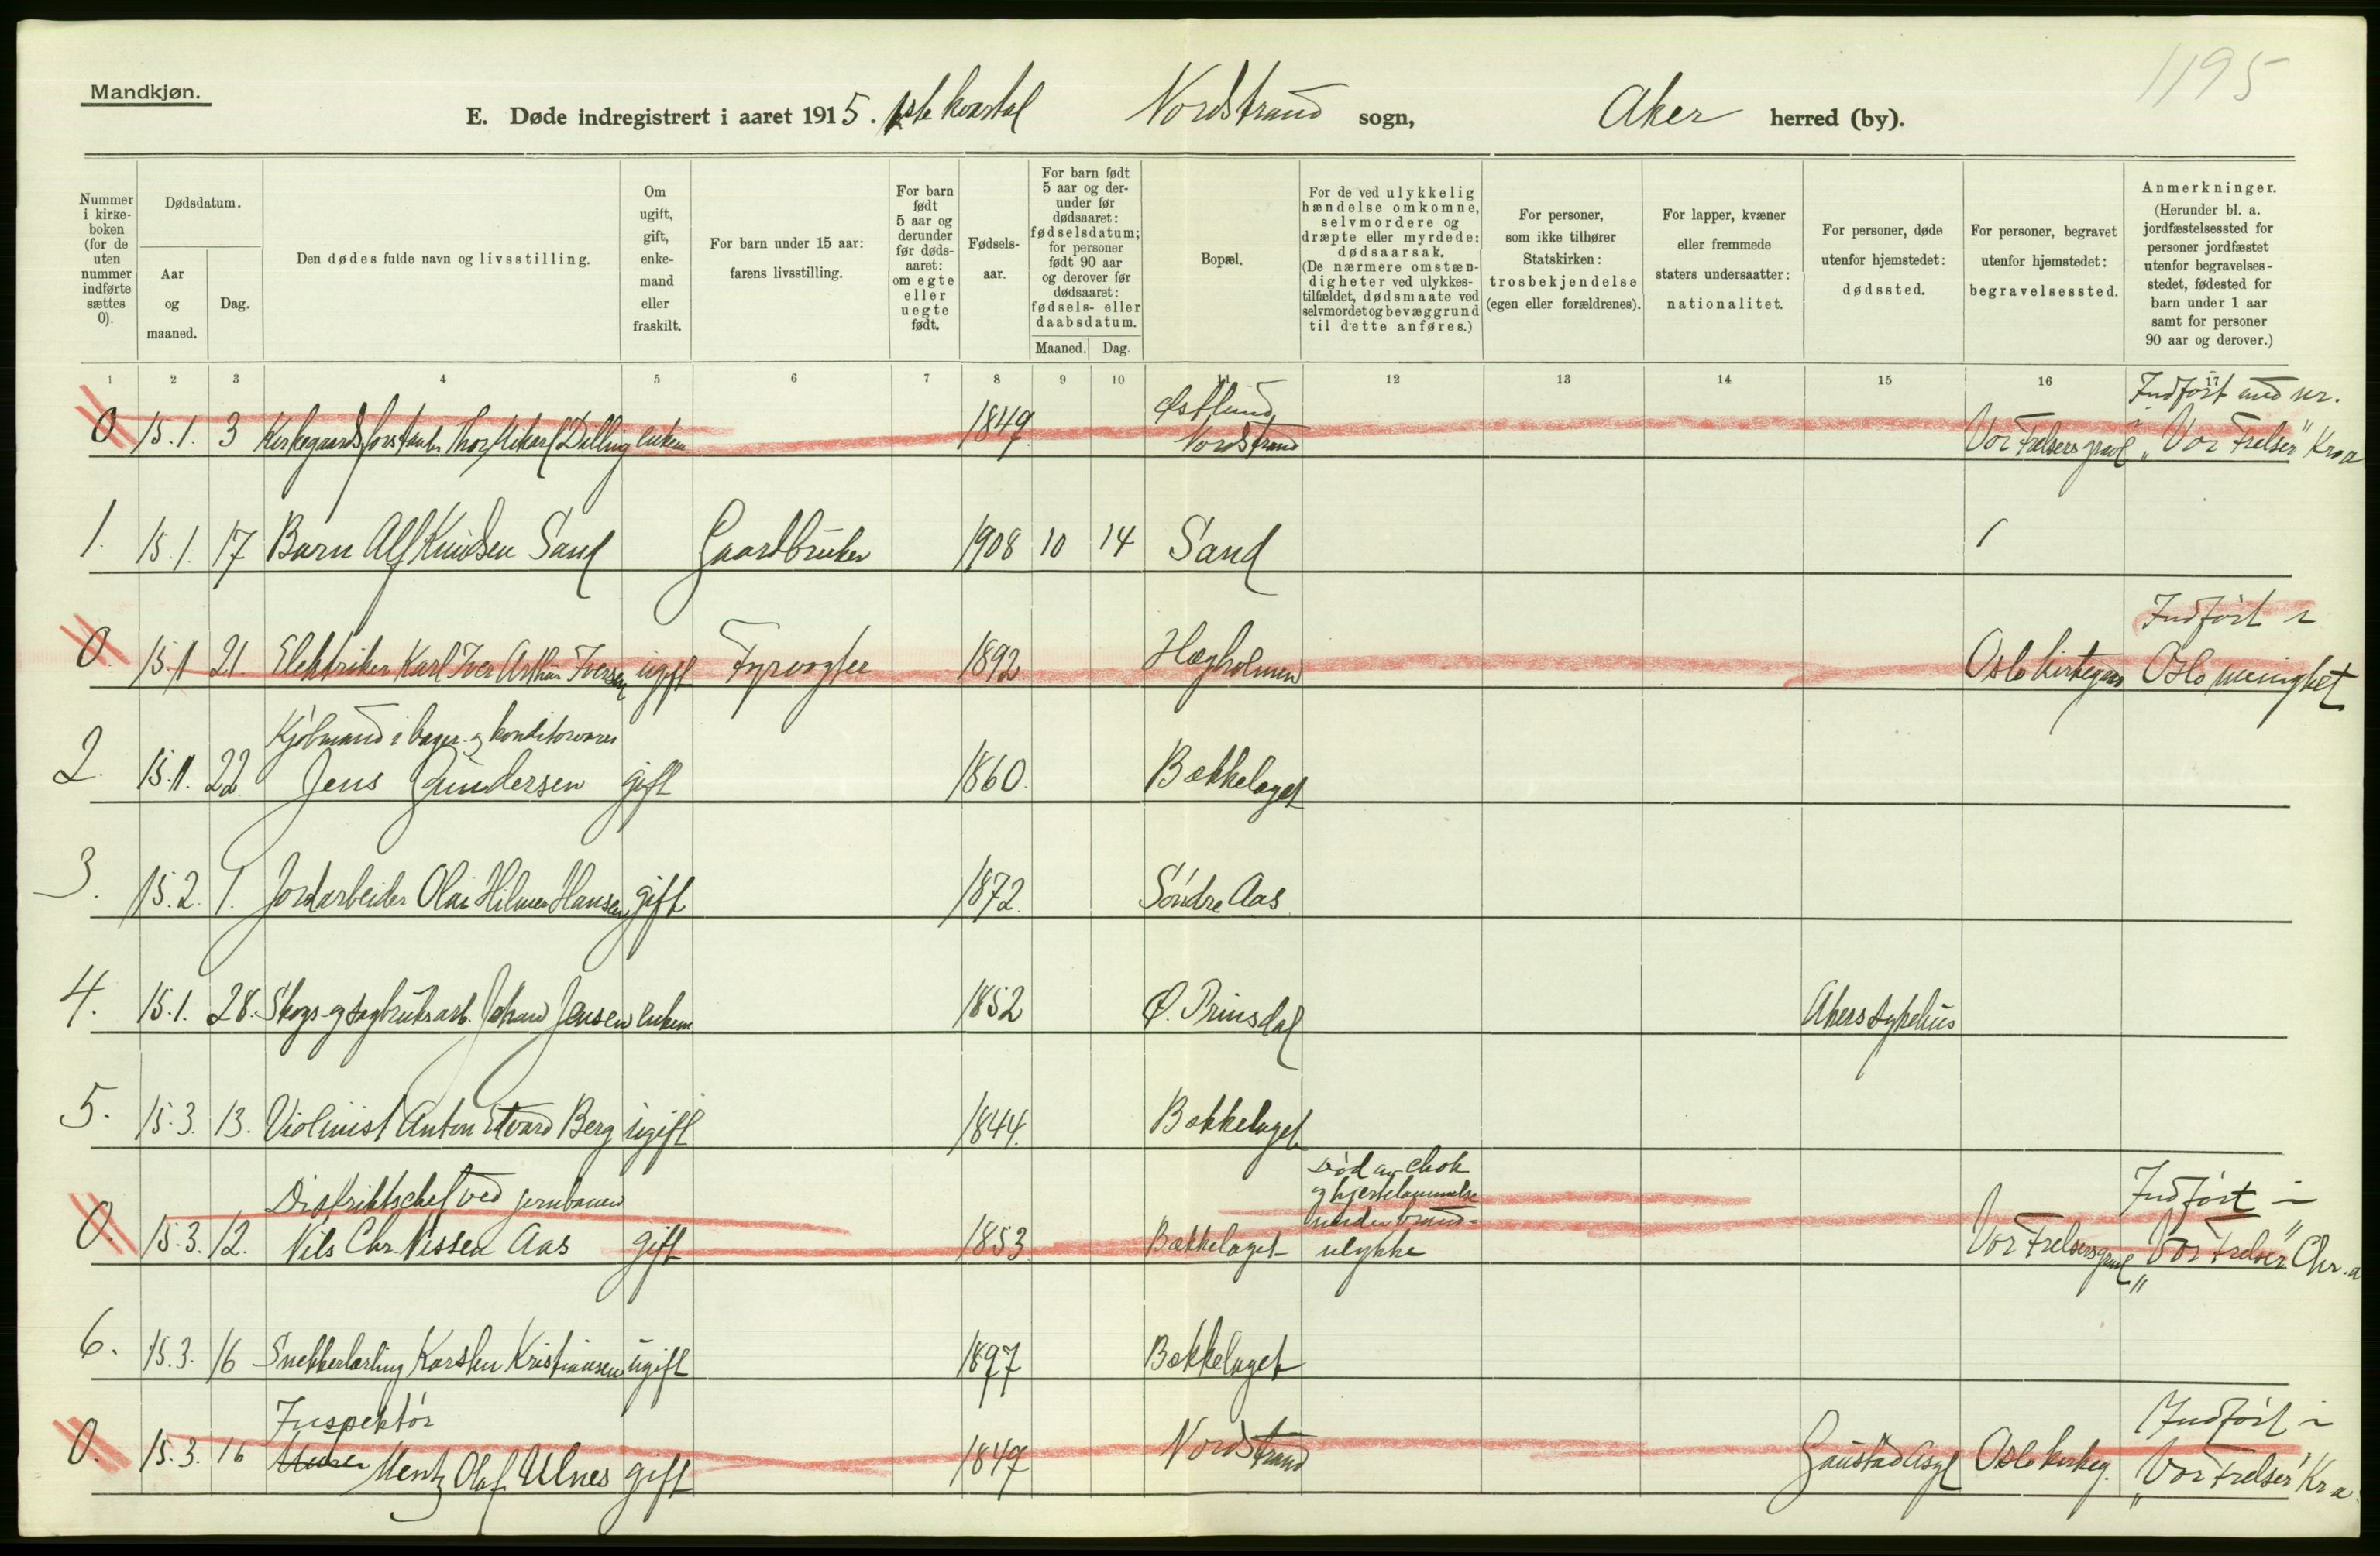 1195
Mandkjøn.
E. Døde indregistrert i aaret 1915. 1ste kvartal Nordstrand sogn, Aker herred (by).
Nummer i kirke-boken (for de uten nummer indførte sættes 0).
Dødsdatum.
Aar og maaned.
Dag.
Den dødes fulde navn og livsstilling.
Om ugift, gift, enke-mand eller fraskilt.
For barn under 15 aar: farens livsstilling.
For barn født 5 aar og derunder før døds-aaret: om egte eller uegte født.
Fødsels-aar.
For barn født 5 aar og der-under før dødsaaret: fødselsdatum; for personer født 90 aar og derover før dødsaaret: fødsels- eller daabsdatum.
Maaned. Dag.
Bopæl.
For de ved ulykkelig hændelse omkomne, selvmordere og dræpte eller myrdede: dødsaarsak. (De nærmere omstæn-digheter ved ulykkes-tilfældet, dødsmaate ved selvmordet og bevæggrund til dette anføres.)
For personer, som ikke tilhører Statskirken: trosbekjendelse (egen eller forældrenes).
For lapper, kvæner eller fremmede staters undersaatter: nationalitet.
For personer, døde utenfor hjemstedet: dødssted.
For personer, begravet utenfor hjemstedet: begravelsessted.
Anmerkninger. (Herunder bl. a. jordfæstelsessted for personer jordfæstet utenfor begravelses-stedet, fødested for barn under 1 aar samt for personer 90 aar og derover.)
1 2 3 4 5 6 7 8 9 10 11 12 13 14 15 16 17
Østlund Indført med nr. i
0 15.1. 3 Kirkegaardsforstander Thor Mikael Dilling enkem. 1849. Nordstrand Vor Frelsers gravl "Vor Frelser" Kr.a
1. 15.1. 17 Barn Alf Knudsen Sand Gaardbruker 1908 10 14 Sand
Indført i
0. 15.1 21. Elektriker Karl Iver Arthur Iversen ugift Fyrvogter 1892 Hægholmen Oslo kirkegaard Oslo menighet
Kjøbmand i bager- og konditorvarer
2. 15.1. 22 Jens Gundersen gift 1860. Bækkelaget
3. 15.2. 1. Jordarbeider Olai Hilmar Hansen gift 1872. Søndre Aas
4. 15.1. 28. Skogs- og sagbruksarb. Johan Jensen enkem 1852 Ø. Prinsdal Akers sykehus
5. 15.3. 13. Violinist Anton Edvard Berg ugift 1844. Bækkelaget
Distriktschef ved jernbanen Død av chok og hjertelammelse under brand- Indført i
0. 15.3. 12. Nils Chr. Nissen Aas gift 1853 Bækkelaget ulykke Vor Frelsers gravl "Vor Frelser" Chr.a
6. 15.3. 16 Snekkerlærling Karsten Kristiansen ugift 1897 Bækkelaget
Inspektør Indført i
0. 15.3. 16 Mentz Olaf Ulnes gift 1849 Nordstrand Gaustad Asyl Oslo kirkeg. "Vor Frelser" Kr a